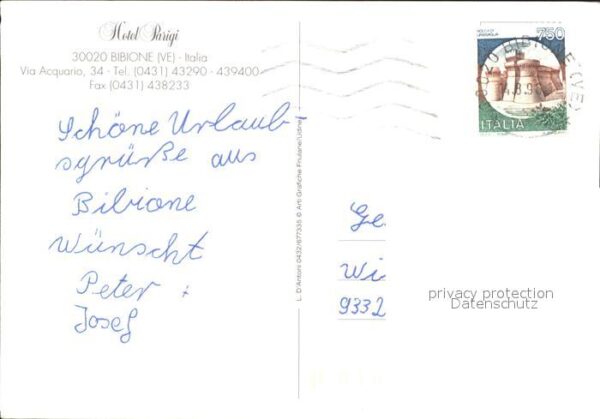 Hotel Parigi
30020 BIBIONE (VE) - Italia
Via Acquario, 34 - Tel. (0431) 43290 - 439400
Fax (0431) 438233
Schöne Urlaub-
sgrüße aus
Bibione
Wünscht
Peter +
Josef
L. D'Antoni 0432/677335 © Arti Grafiche Friulane/Udine
750
ITALIA
Ge
Wi
9332
privacy protection
Datenschutz